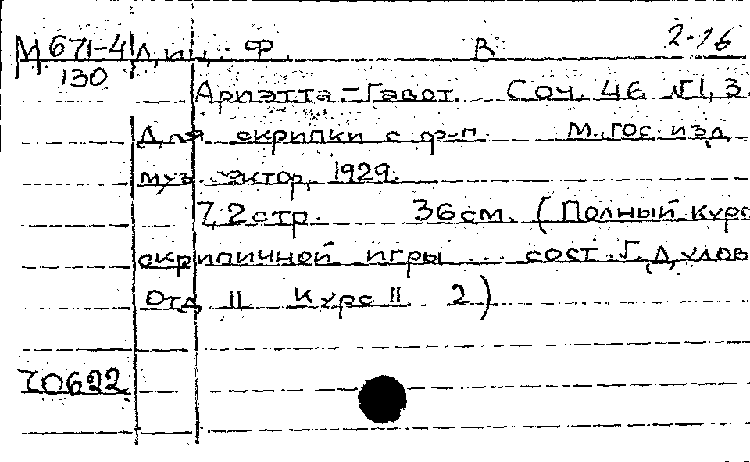 М 671-4 Ф. В 2-16
130
Ариэтта-Гавот. Соч. 46 №1, 3.
Для скрипки с ф-п. М. гос. изд.
муз. сектор, 1929.
7,2 стр. 36 см. (Полный курс
скрипичной игры ... сост. Г. Дулов
Отд II Курс II 2)
70622